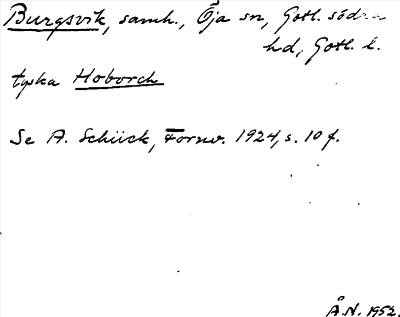 Burgsvik, samh., Öja sn, Gotl. södra
hd, Gotl. l.
tyska Hoborch
Se A. Schück, Fornv. 1924, s. 10 f.
Å.N. 1952.